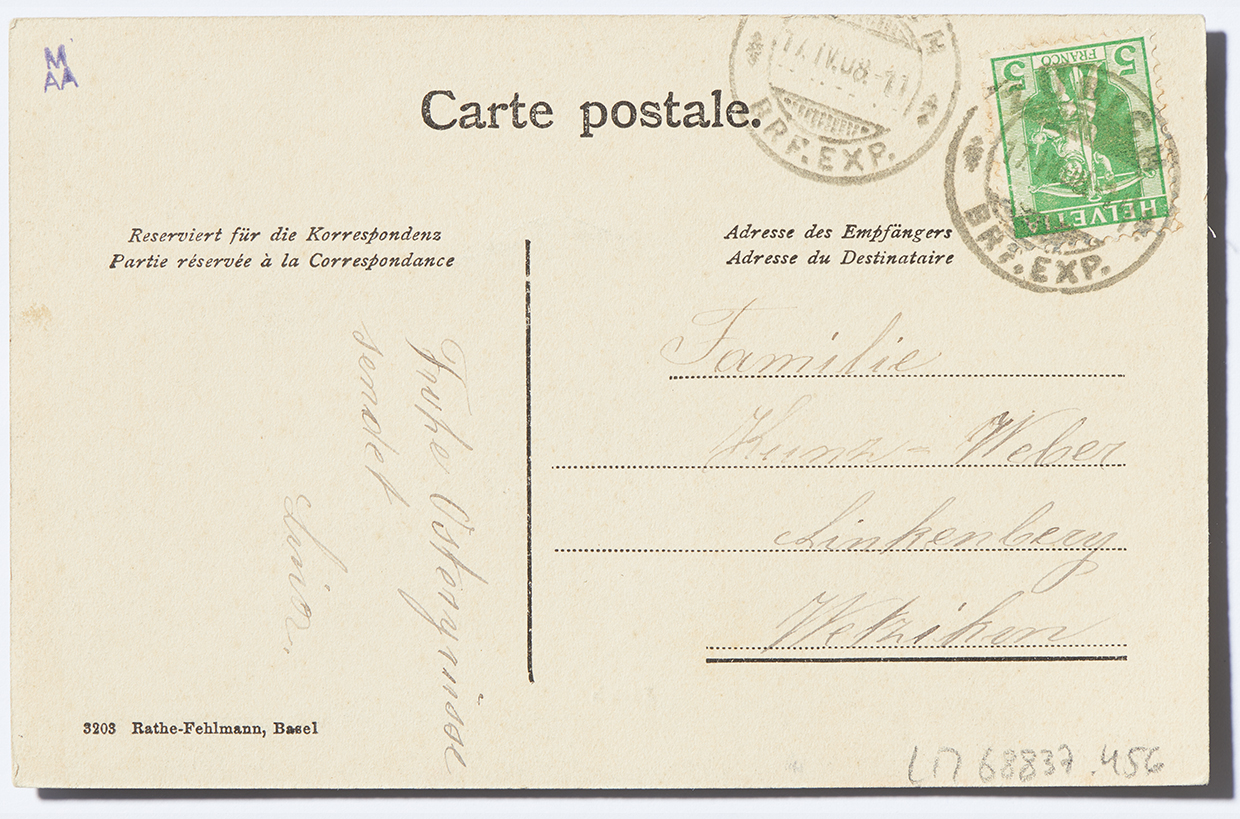 M
AA
Carte postale.
17.IV.08.-11
BRF. EXP.
5 FRANCO 5
HELVETIA
ZÜRICH
BRF. EXP.
Reserviert für die Korrespondenz
Partie réservée à la Correspondance
Adresse des Empfängers
Adresse du Destinataire
Frohe Ostergrüsse
sendet
Familie
Kunz-Weber
Linkenberg
Wetzikon
3203 Rathe-Fehlmann, Basel
LM 68837.456